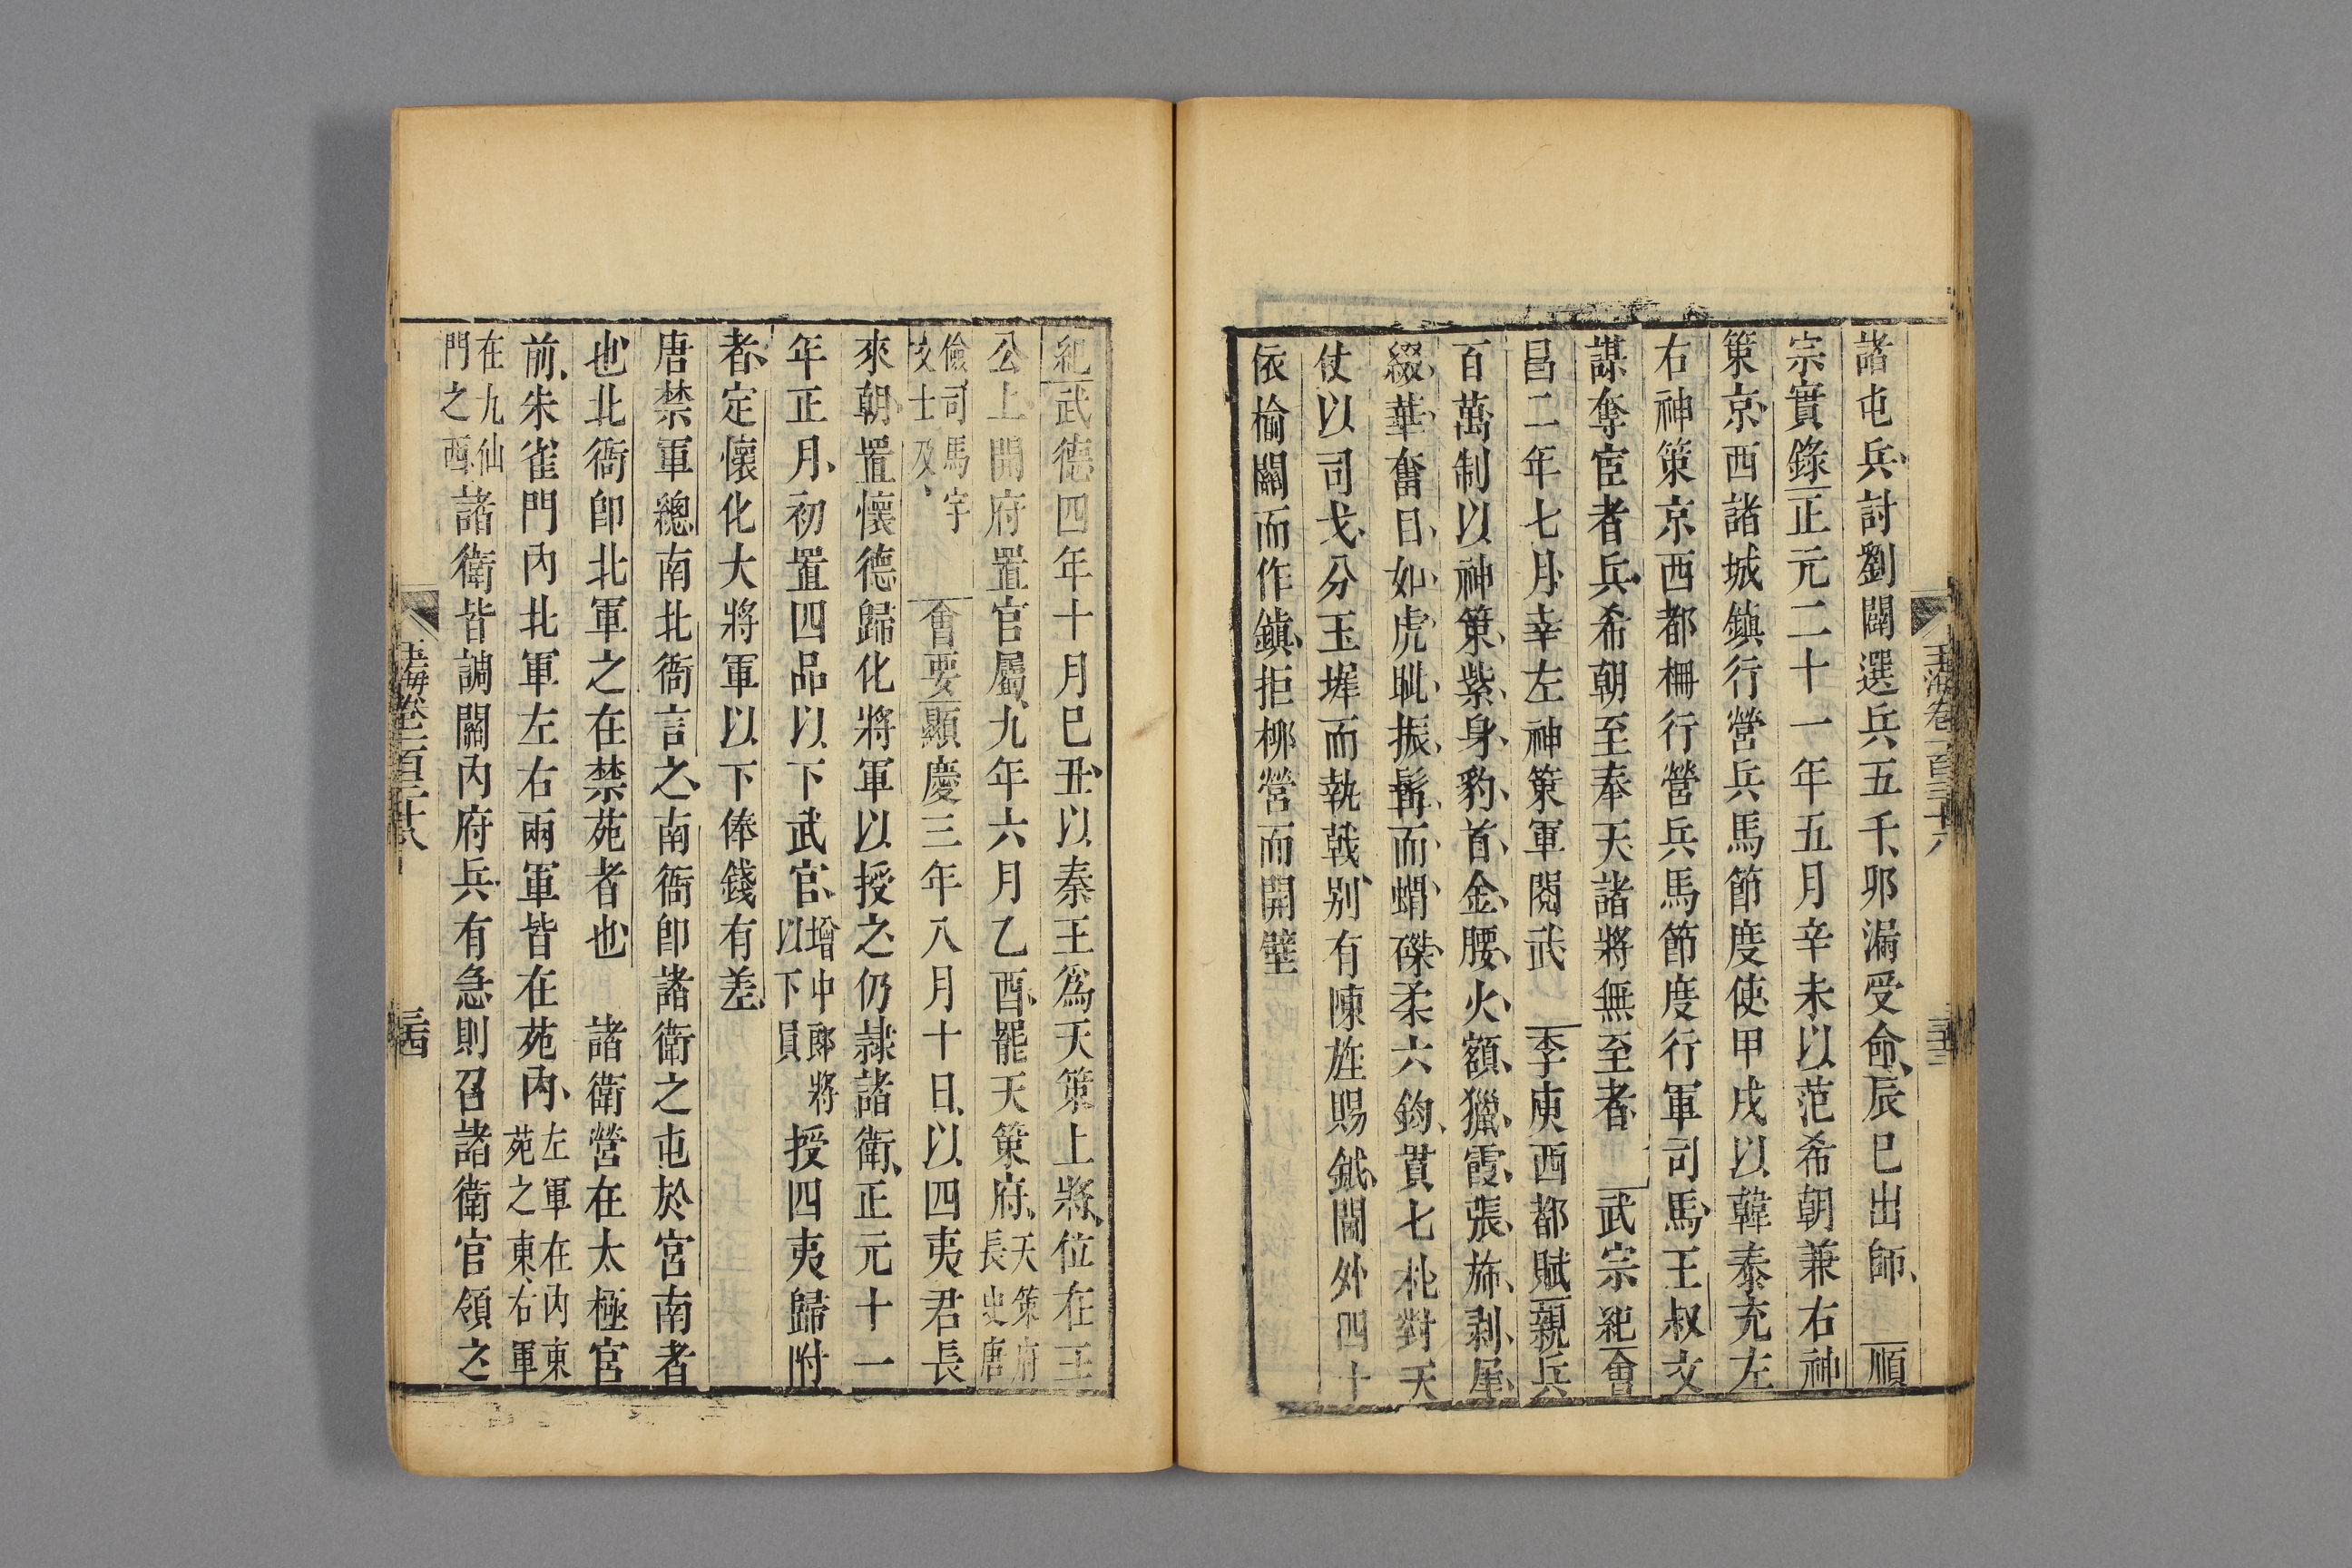 玉海卷一百三十八
三十三
諸屯兵討劉闢選兵五千卯漏受命辰巳出師 順
宗實錄正元二十一年五月辛未以范希朝兼右神
策京西諸城鎮行營兵馬節度使甲戌以韓泰充左
右神策京西都柵行營兵馬節度行軍司馬王叔文
謀奪宦者兵希朝至奉天諸將無至者 武宗紀會
昌二年七月幸左神策軍閱武 李庾西都賦親兵
百萬制以神策紫身豹首金腰火額獵霞張旆剥犀
綴華奮日如虎眦振髯而蝟磔柔六鈞貫七札對天
仗以司戈分玉墀而執戟别有陳旌賜鉞閫外四十
依榆關而作鎮拒栁營而開壁
紀武德四年十月巳丑以秦王爲天策上將位在王
公上開府置官屬九年六月乙酉罷天策府天策府長史唐
儉司馬宇文士及 會要顯慶三年八月十日以四夷君長
來朝置懷德歸化將軍以授之仍隸諸衛正元十一
年正月初置四品以下武官增中郎將以下員授四夷歸附
者定懷化大將軍以下俸錢有差
唐禁軍總南北衙言之南衙卽諸衛之屯於宮南者
也北衙卽北軍之在禁苑者也 諸衛營在太極宮
前朱雀門内北軍左右兩軍皆在苑内左軍在内東苑之東右軍
在九仙門之西諸衛皆調關内府兵有急則召諸衛官領之
玉海卷一百三十八
三十四